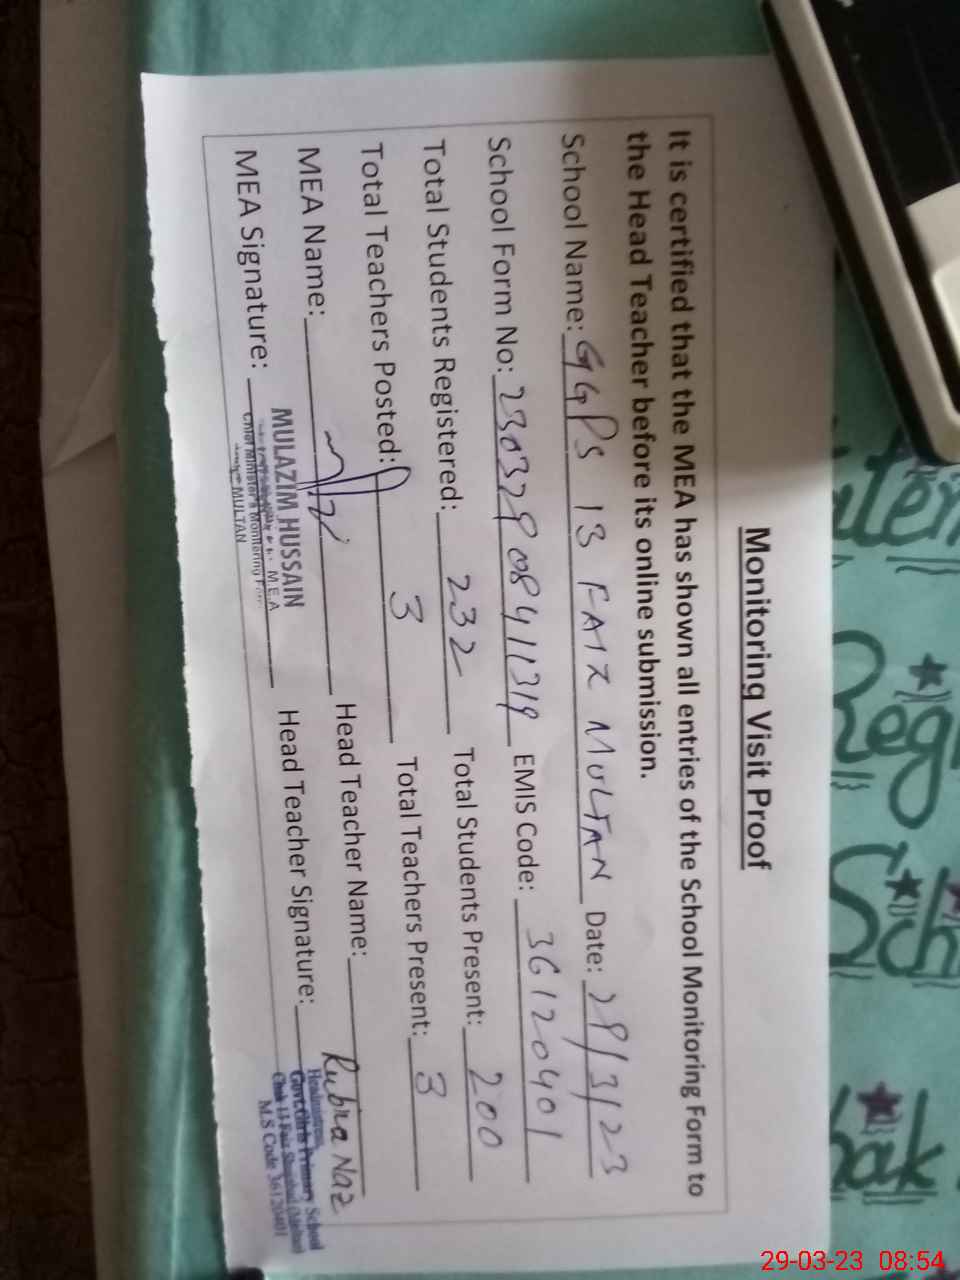 Monitoring Visit Proof
It is certified that the MEA has shown all entries of the School Monitoring Form to
the Head Teacher before its online submission.
School Name: GGPS 13 FAIZ MULTAN Date: 29/3/23
School Form No: 23032908411319 EMIS Code: 36120401
Total Students Registered: 232 Total Students Present: 200
Total Teachers Posted: 3 Total Teachers Present: 3
MEA Name: Head Teacher Name: Rubina Naz
MEA Signature: Head Teacher Signature:
MULAZIM HUSSAIN
M.E.A
Chief Minister's Monitoring Force
MULTAN
Headmistress
Govt. Girls Primary School
Chak 13 Faiz
M.S Code 36120401
Reg
Sch
hak
29-03-23 08:54